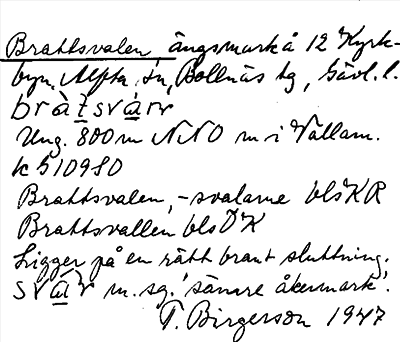 Brattsvalen, ängsmark å 12 Kyrk-
byn, Alfta sn, Bollnäs tg, Gävl. l.
bràt̲svá̲rr
Ung. 800 m NNO m i Vallam.
k 510980
Brattsvalen, -svalarne bls KR
Brattsvallen bls ÖK
Ligger på en rätt brant sluttning.
svá̲r m. sg. 'sämre åkermark'.
T. Birgerson 1947